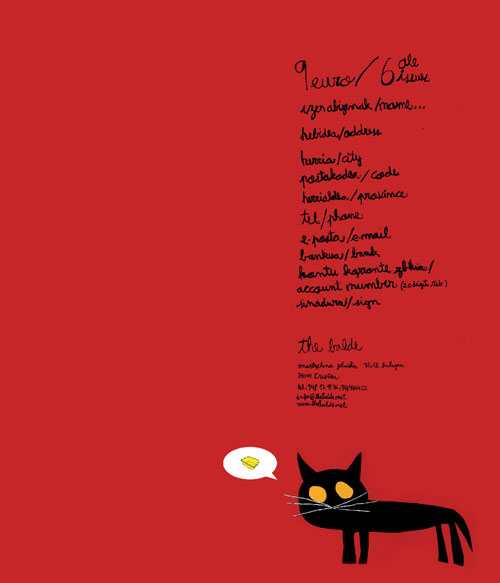 9 euro / 6 ale
issues
izen abizenak / name...
helbidea / address
herria / city
postakodea / code
herrialdea / province
tel / phone
e-posta / e-mail
bankua / bank
kontu korronte zbkia /
account number (20 digit)
sinadura / sign
the balde
tel:
info@thebalde.net
www.thebalde.net